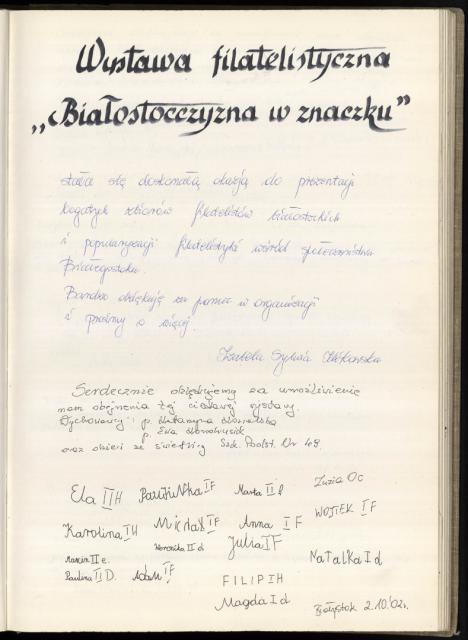 Wystawa filatelistyczna
„Białostocczyzna w znaczku”
stała się doskonałą okazją do prezentacji
bogatych zbiorów filatelistów białostockich
i popularyzacji filatelistyki wśród społeczeństwa
Białegostoku.
Bardzo dziękuję za pomoc w organizacji
i prosimy o więcej.
Izabela Sylwia
Serdecznie dziękujemy za umożliwienie
nam obejrzenia tej ciekawej wystawy.
Wychowawcy: p. Katarzyna
p. Ewa
oraz dzieci ze świetlicy Szk. Podst. Nr 49.
Ela II H Paulinka I F Marta II d Zuzia 0c
Karolina I H Michał I F Anna I F WOJTEK I F
Marcin II e. Weronika II d Julia I F NaTalKa I d
Paulina II D. Adam I F
FILIP I H
Magda I d Białystok 2.10.'02r.